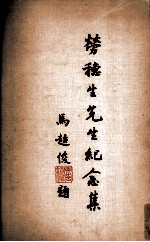 勞穗生先生紀念集
馬超俊
題